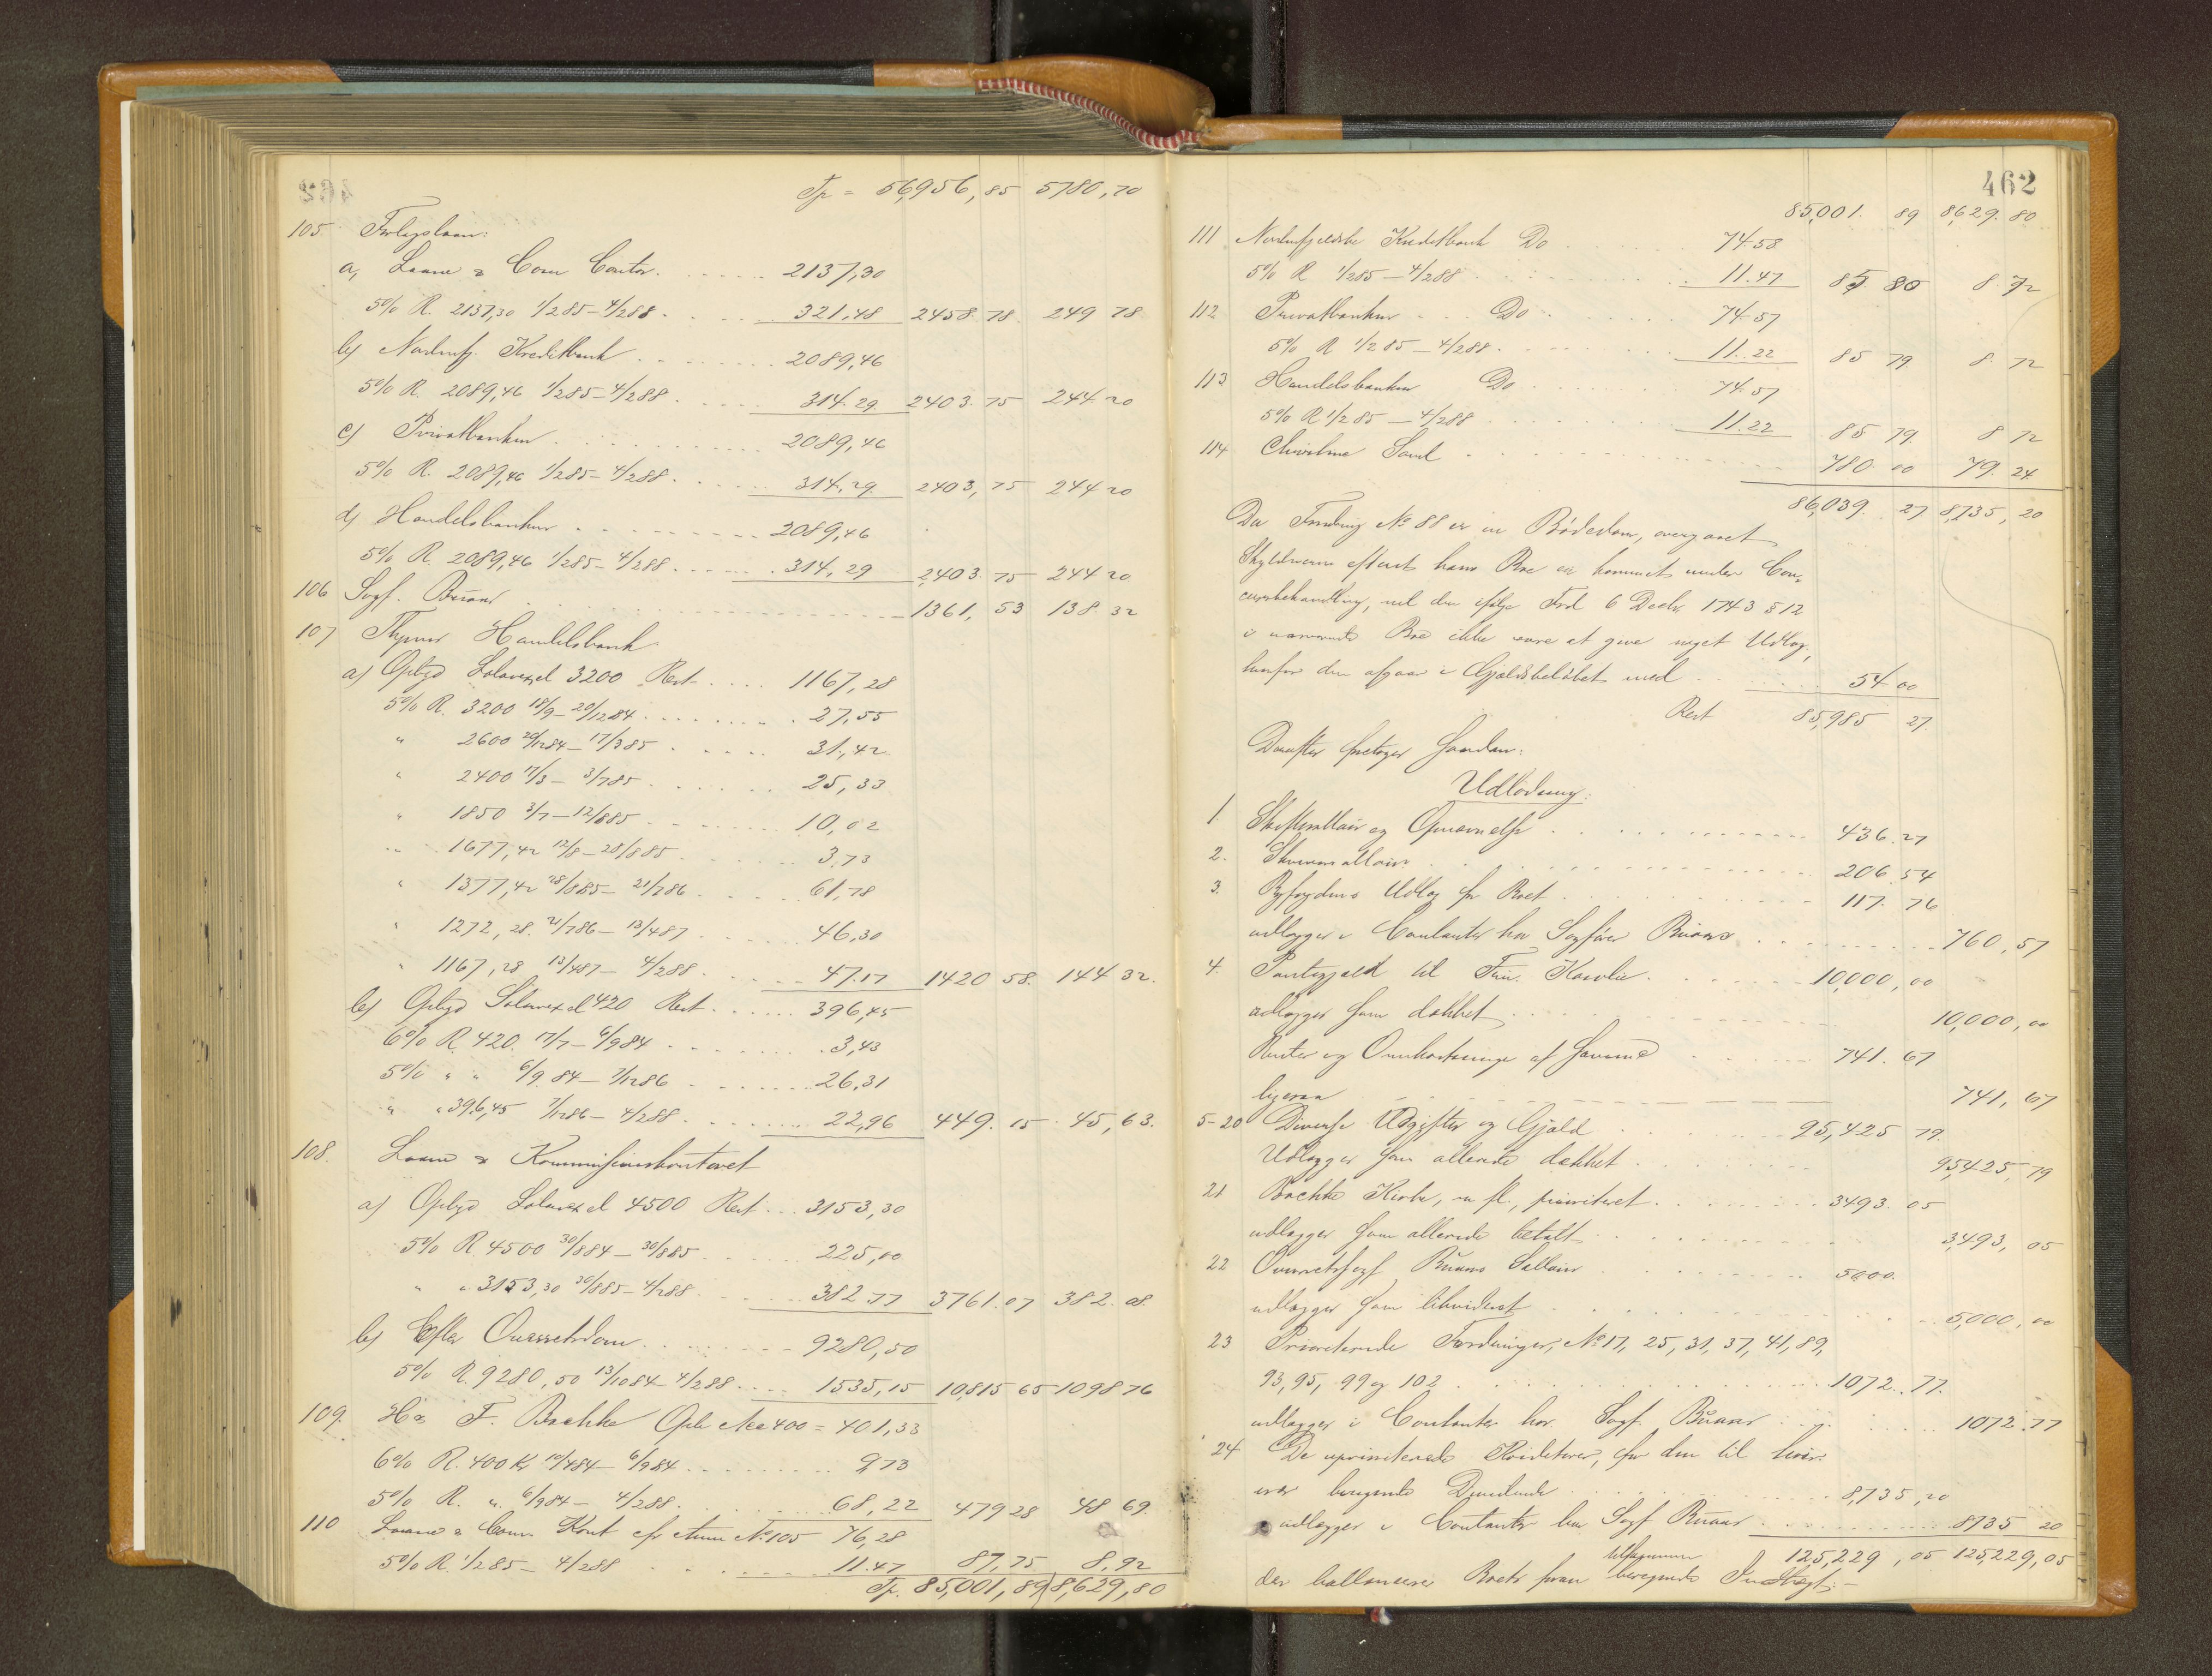 Tr = 56,956,85 5780,70
105 Forligslaan:
a, Laane & Com Contor. 2137,30
5% R. 2137,30 1/285-4/288. 321,48 2458.78. 249 78
b) Nordenfj. Kreditbank 2089,46
5% R. 2089,46 1/285-4/288. 314.29. 2403.75 244.20
c) Privatbanken 2089,46
5% R. 2089,46 1/285-4/288. 314,29. 2403,75 244 20
d) Handelsbanken 2089,46
5% R. 2089,46 1/285-4/288. 314,29 2403.75 244 20
106 Sagf. Buaas 1361,53 138.32
107 Handelsbank
a) Opbgd Solavexel 3200 Rest 1167,28
5% R. 3200 18/9-20/1284. 27,55
" 2600 20/1284-17/385. 31,42
" 2400 17/3-3/785. 25,33
" 1850 3/7-12/885. 10,02
" 1677,42 12/8-28/885. 3,73
" 1377,42 28/885-21/786. 61,78
" 1272,28. 21/786-13/487 46,30
" 1167,28 13/487-4/288. 47.17 1420 58. 144 32.
b) Opbgd Solavexel 420 Rest. 396,45
6% R. 420. 17/7-6/984 3,43
5% " " 6/9 84-7/1286 26,31
" " 396,45 7/1286-4/288. 22,96 449.15. 45,63.
108. Laane & Kommissionskontoret
a) Opbgd Solavexel 4500 Rest 3153,30
5% R. 4500 30/884-30/885 225,00
" " 3153,30 30/885-4/288 382.77 3761.07 382.08.
b) Efter Overretsdom 9280,50
5% R. 9280,50 13/1084-4/288 1535,15 10,815 65 1098 76
109. H & F. Bachke 400 = 401,33
6% R. 400 Kr 10/484-6/984 9,73
5% R. " 6/984-4/288. 68,22 479 28 48 69.
110 Laane & Com Kont No 105 76,28
5% R 1/285-4/288 11.47 87,75 8,92
Tr. 85,001,89 8,629,80
462
85,001. 89 8,629. 80
111 Nordenfjeldske Kreditbank Do 74.58
5% R 1/285-4/288. 11.47 85 80 8.72
112 Privatbanken Do 74.57
5% R 1/285-4/288. 11.22 85 79. 8.72
113 Handelsbanken Do 74.57
5% R 1/285-4/288 11.22 85 79. 8 72
114 Sand 780.00 79.24
86,039. 27 8,735,20
Da Fordring No 88 er en Bødedom, overgaaet
Skyldneren efterat hans Boe er kommet under Con-
cursbehandling, vil den ifølge Frd 6 Decbr 1743 § 12
i nærværende Boe ikke være at give noget Udlæg,
hvorfor den afgaar i Gjældsbeløbet med 54.00
Rest 85,985 27.
Derefter foretoges saadan:
Udlodning:
1 Skiftesallair og Opnævnelse 436.27
2. Skriversallair 206.54
3. Byfogdens Udlæg for Boet 117.76
udlægges i Contanter hos Sagfører Buaas 760,57
4. Pantegjæld til 10,000,00
udlægges som dækket 10,000,00
Renter og Omkostninger af samme 741.67
ligesaa 741,67
5-20 Diverse Udgifter og Gjæld 95,425 79.
Udlægges som allerede dækket 95,425,79
21 Bachke Kirke, m fl., prioriteret 3493.05
udlægges som allerede betalt 3,493,05
22 Overretssagf. Buaas Sallair 5000.
udlægges som likvideret 5,000,00
23 Prioriterede Fordringer, No 17, 25, 31, 37, 41, 89,
93, 95, 99 og 102 1072.77.
udlægges i Contanter hos Sagf. Buaas 1072.77
24 De uprioriterede Kreditorer, for den til hver
især beregnede Dividende 8,735,20
udlægges i Contanter hos Sagf Buaas 8735 20
tilsammen 125,229,05 125,229,05
der ballancerer Boets foran beregnede Indtægt.-